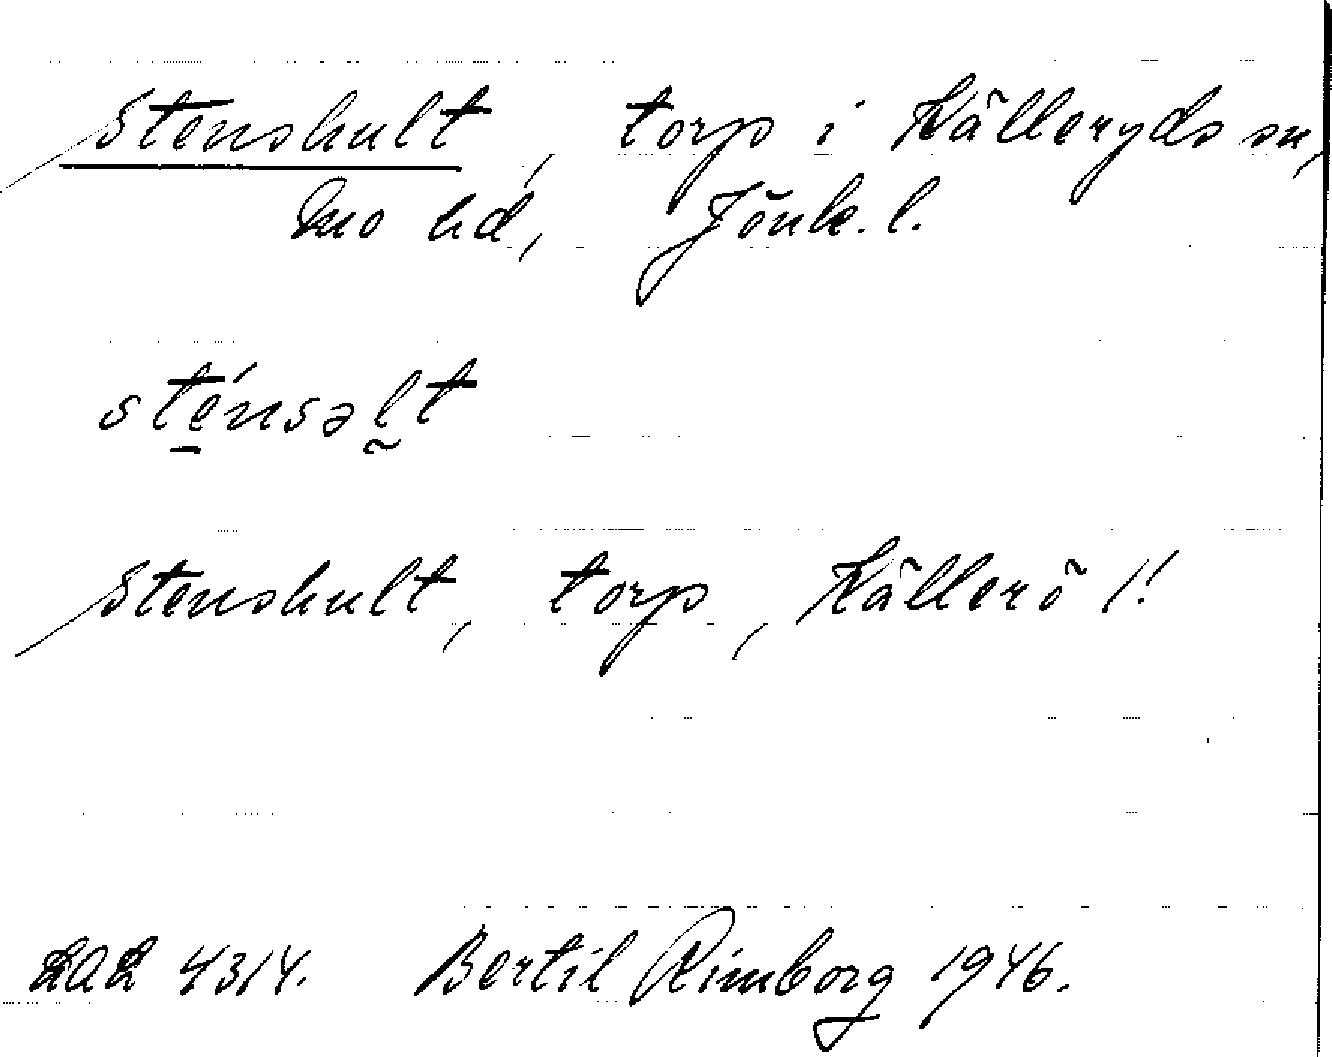 Stenshult, torp i Kålleryds sn,
Mo hd, Jönk. l.
sténsəlt
Stenshult, torp, Kållerö 1!
4314. Bertil Rimborg 1946.